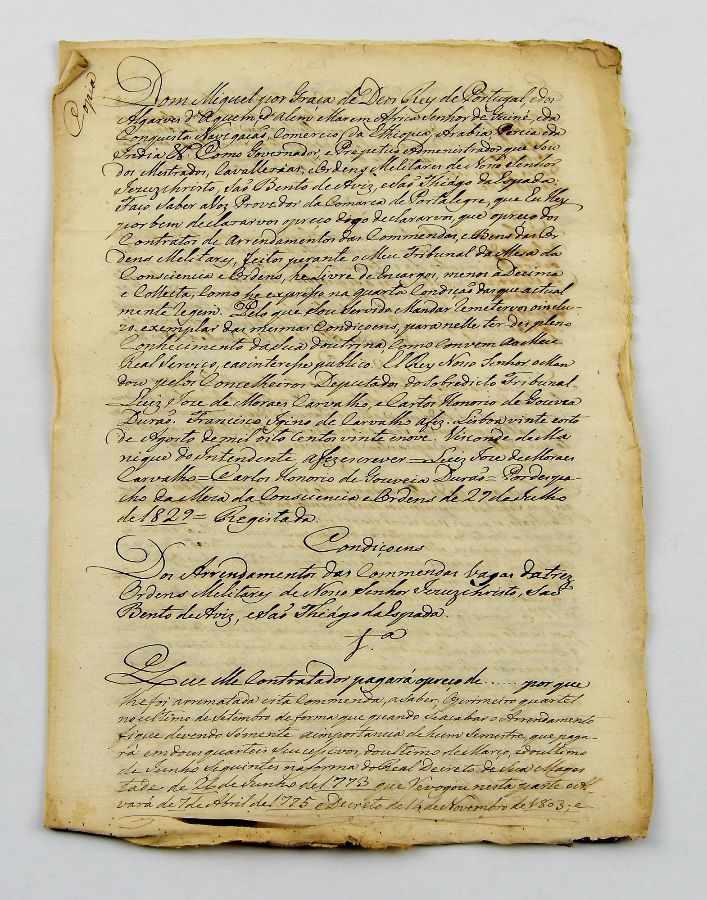 Copia
Dom Miguel por Graca de Deos Rey de Portugal, e dos
Algarves d'Aquem, e d'alem Mar em Africa Senhor de Guiné, e da
Conquista Navegação, Comercio da Ethiopia, Arabia, Percia e da
India &ª. Como Governador, e Perpetuo Administrador que Sou
dos Mestrados, Cavallerias, e Ordens Militares de Nosso Senhor
Jezuz christo, Saõ Bento de Aviz, e Saõ Thiágo da Espada.
Faço Saber a Voz Provedor da Comarca de Portalegre, que Eu Hey
por bem declararvos o preço digo declararvos, que o preço dos
Contratos de Arrendamentos das Commendas, e Bens das Or
dens Militarey, feitos perante o Meu Tribunal da Meza da
Consciencia e Ordens, he Livre de Encargos, menos a Decima
e Collecta, como he expresso na quarta Condição das que actual
mente regem. Pelo que Sou Servido Mandar remetervos o inclu
zo, exemplar das mesmas Condiçoens, para nelle ter des pleno
Conhecimento da sua doutrina, como convem ao Meu
Real Serviço, e ao interesse publico. El Rey Nosso Senhor o Man
dou pelos Concelheiros Deputados do Sobredicto Tribunal
Luiz Joze de Moraes Carvalho, e Carlos Honorio de Gouvea
Duraõ. Francisco Irino de Carvalho a fez. Lisboa vinte e oito
de Agosto de mil oito centos vinte e nove. Visconde de Ma
nique do Intendente a fez escrever = Luiz Joze de Moraes
Carvalho = Carlos Honorio de Gouveia Duraõ = Por despa
cho da Meza da Consciencia e Ordens de 27 de Julho
de 1829 = Registada.
Condiçoens
Dos Arrendamentos das Commendas vagas da trez
Ordens Militarey de Nosso Senhor Jezuz christo, Saõ
Bento de Aviz, e Saõ Thiágo da Espada.
1.ª
Que elle Contratador pagará o preço de ...... por que
lhe foi arrematada esta Commenda, a saber, o primeiro quartel
no ultimo de Setembro de forma que quando Se acabar o Arrendamento
fique devendo Somente a importancia de hum Semestre, que paga-
rá em dous quarteis Sucessivos, do ultimo de Março, e do ultimo
de Junho Seguintes na forma do Real Decreto de Sua Mages
tade de 26 de Junho de 1773 que revogou nesta parte o Al
vará de 7 de Abril de 1775 e Decreto de 14 de Novembro de 1803, e